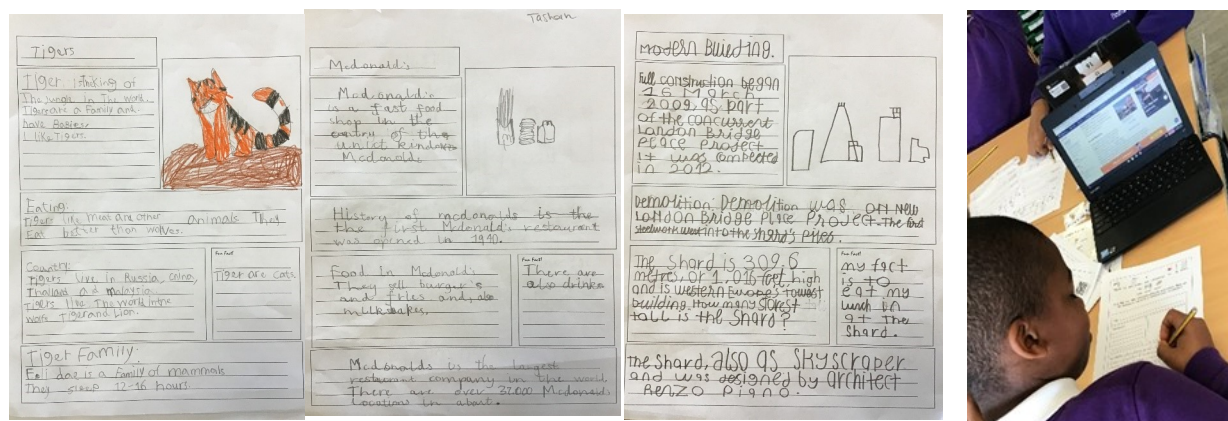 Tigers
Tiger. I thinking of
the Jungle In The world.
Tiger are a Family and
have Babies
I like Tigers
Eating:
Tigers like meat are other animals They
Eat better than wolves.
Country:
Tigers live in Russia, China,
Thailand and malaysia.
Tigers like The World in the
Tiger and Lion.
Fun Fact!
Tiger are cats
Tiger Family:
Feli dae is a Family of mammals
They sleep 12-16 hours
Mcdonald's
Mcdonald's
is a fast food
shop in the
country of the
Mcdonald's
History of mcdonald's is the
the first Mcdonald's restaurant
was opened in 1940.
Food In Mcdonald's
They sell burger's
and fries and, also
milkshakes.
Fun Fact!
There are
also drinks
Mcdonald's is the largest
restaurant company in the world,
There are over 37000 Mcdonald's
locations in about.
Modern Buieding.
Full construction began
16 March
2009 as part
of the concurrent
London Bridge
Place Project
It was completed
in 2012.
Demolition: Demolition was on New
London Bridge Place Project. The first
steelwork went into the Shard's piles.
The Shard is 309.6
metres or 1,016 feet high
and is western Europe's
building. How many
tall is the Shard?
Fun Fact!
my fact
is to
eat my
lunch in
at the
Shard.
the Shard, also as Skyscraper
and was designed by architect
Renzo Piano.